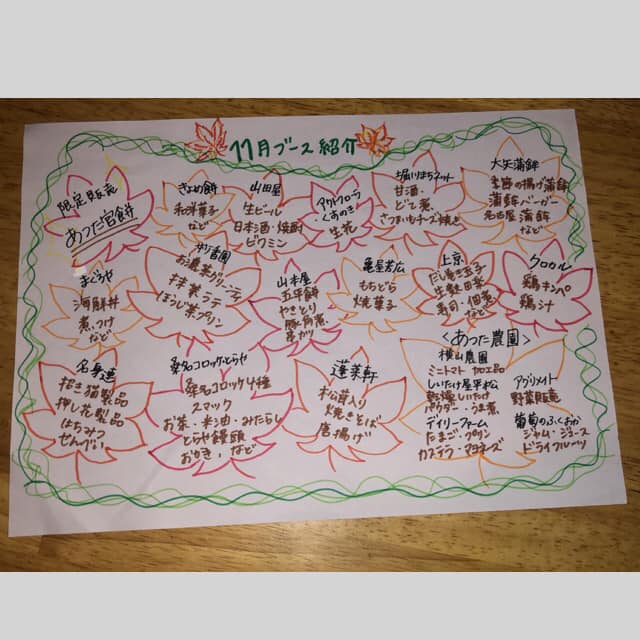 11月ブース紹介
限定販売
あつた宮餅
きよめ餅
和洋菓子
など
山田屋
生ビール
日本酒・焼酎
ビワミン
アクトフローラ
くすのき
生花
堀川まちネット
甘酒・
どて煮
さつまいもチーズ焼き
大矢蒲鉾
季節の揚げ蒲鉾
蒲鉾バーガー
名古屋蒲鉾
など
まぐろや
海鮮丼
煮つけ
など
お濃茶グリーンティ
抹茶ラテ
ほうじ茶プリン
山本屋
五平餅
やきとり
豚角煮
串カツ
亀屋芳広
もちどら
焼菓子
上京
だし巻き玉子
生麩田楽
寿司・佃煮
など
クロカル
鶏キンパ
鶏汁
名身連
招き猫製品
押し花製品
はちみつ
せんべい
桑名コロッケとらや
桑名コロッケ4種
スマック
お茶・米油・みたらし
とらや饅頭
おかき,など
蓬莱軒
松茸入り
焼きそば
唐揚げ
<あつた農園>
横山農園
ミニトマト 加工品
しいたけ屋平松
乾燥しいたけ
パウダー・うま煮
デイリーファーム
たまご・プリン
カステラ・マヨネーズ
アグリメイト
野菜販売
葡萄のふくおか
ジャム・ジュース
ドライフルーツ